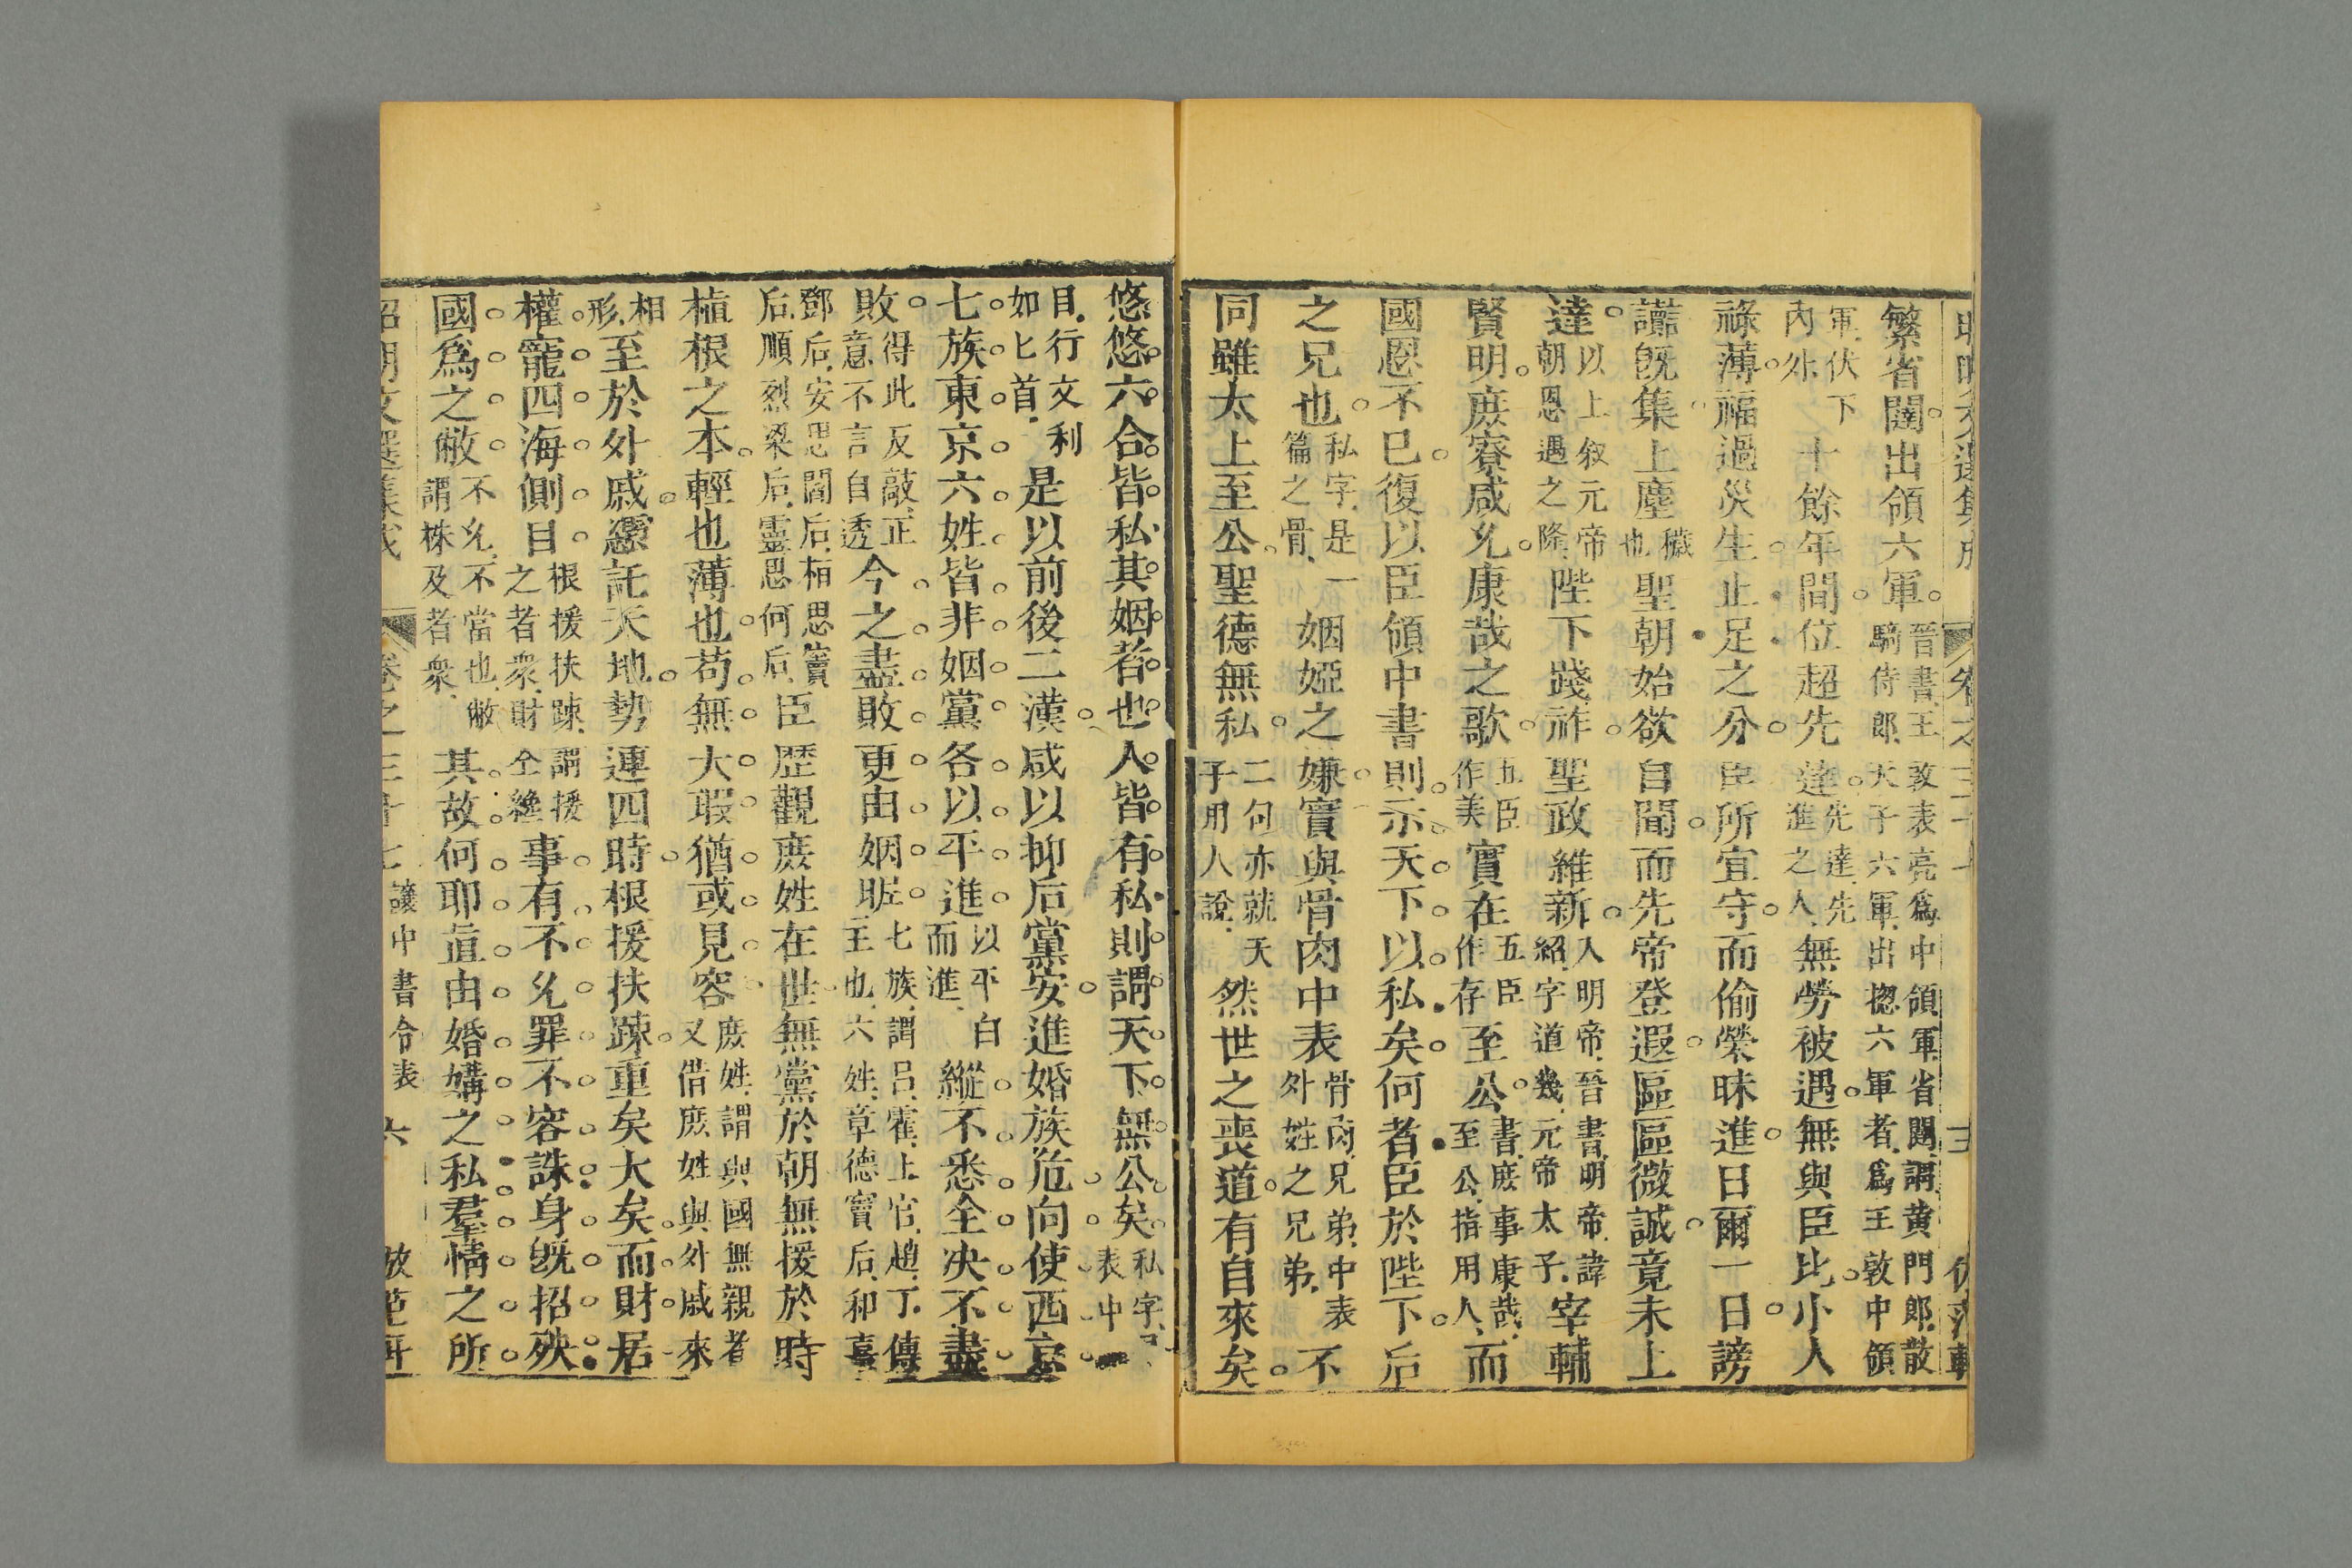 繁省闥出領六軍晉書王敦表亮爲中領軍省闥謂黄門郎散騎侍郎天子六軍出揔六軍者爲王敦中領
軍伏下內外十餘年間位超先達先達先進之人無勞被遇無與臣比小人
祿薄福過災生止足之分臣所宜守而偷榮昧進日爾一日謗
讟旣集上塵穢也聖朝始欲自聞而先帝登遐區區微誠竟未上
達以上叙元帝朝恩遇之隆陛下踐祚聖政維新入明帝晉書明帝諱紹字道幾元帝太子宰輔
賢明庶寮咸允康哉之歌五臣作美實在五臣作存至公書庶事康哉至公指用人而
國恩不已復以臣領中書則示天下以私矣何者臣於陛下后
之兄也私字是一篇之骨姻婭之嫌實與骨肉中表骨肉兄弟中表外姓之兄弟不
同雖太上至公聖德無私二句亦就天子用人說然世之喪道有自來矣
悠悠六合皆私其姻者也人皆有私則謂天下無公矣私字表中
目行文利如匕首是以前後二漢咸以抑后黨安進婚族危向使西京
七族東京六姓皆非姻黨各以平進以平白而進縱不悉全决不盡
敗得此反敲正意不言自透今之盡敗更由姻昵七族謂呂霍上官趙丁傅王也六姓章德竇后和熹
鄧后安思閻后桓思竇后順烈梁后靈思何后臣歷觀庶姓在世無黨於朝無援於時
植根之本輕也薄也苟無大瑕猶或見容庶姓謂與國無親者又借庶姓與外戚來
相形至於外戚憑託天地勢連四時根援扶踈重矣大矣而財居
權寵四海側目根援扶踈謂援之者衆財仝纔事有不允罪不容誅身旣招殃
國爲之敝不允不當也敝謂株及者衆其故何耶直由婚媾之私羣情之所
昭明文選集成 卷之三十七 讓中書令表 六